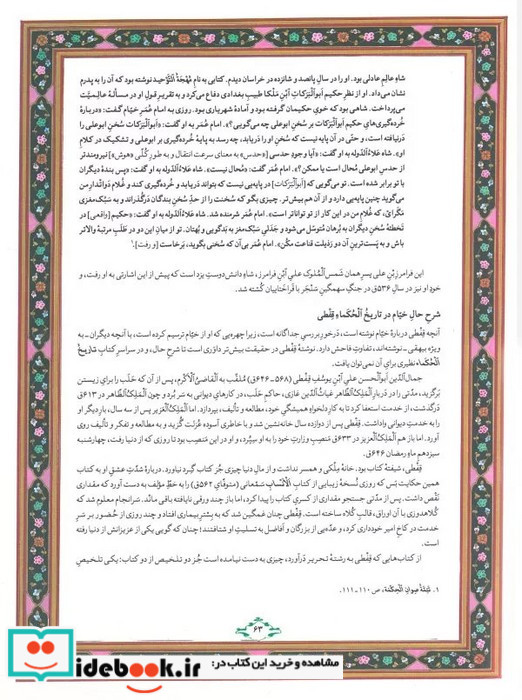 شاهِ عالِمِ عادلی بود. او را در سالِ پانصد و شانزده در خراسان دیدم. کتابی به نامِ مُهْجَةُ التَّوْحید نوشته بود که آن را به پدرم
نشان می‌داد. او از نظرِ حکیم اَبوالْبَرَکاتِ اِبْنِ مَلْکا طبیبِ بغدادی دفاع می‌کرد و به تقریرِ قولِ او در مسألۀ عالِمیّت
می‌پرداخت. شاهی بود که خویِ حکیمان گرفته بود و آمادۀ شهریاری بود. روزی به امام عُمَرِ خیّام گفت: «دربارۀ
خُرده‌گیری‌های حکیم اَبوالْبَرَکات بر سُخَنِ ابوعلی چه می‌گویی؟». امام عُمَر به او گفت: «اَبوالْبَرَکات سُخَنِ ابوعلی را
دَرنیافته است، و حتّی در آن پایه نیست که سُخَنِ او را دَریابد، چه رسد به پایۀ خُرده‌گیری بر ابوعلی و تشکیک در کلامِ
او». شاه عَلاءُالدّوله به او گفت: «آیا وجودِ حدسی [«حدس» به معنای سرعت انتقال و به طورِ کُلّی «هوش»] نیرومندتر
از حدسِ ابوعلی مُحال است یا ممکن؟». امام عُمَر گفت: «مُحال نیست». شاه عَلاءُالدّوله به او گفت: «پس بندۀ دیگران
با تو برابر شده است. تو می‌گویی که [اَبوالْبَرَکات] در پایه‌یی نیست که بتواند دَریابد و خُرده‌گیری کند و غُلامِ دَواتْدارِ من
می‌گوید چنین پایه‌یی دارد و از آن هم بیش‌تر. چیزی بگو که سُخَنت را از حدِّ سُخَنِ بندگان دَرگُذراند و به سبک‌مغزی
نگرای، که غُلامِ من در این کار از تو تواناتر است». امام عُمَر شرمنده شد. شاه عَلاءُالدّوله به او گفت: «حکیمِ [واقعی] در
تَخطئه سُخَنِ دیگران به بُرهان مُتوسِّل می‌شود و جَدَلیِ سَبُک‌مغز به بَدگویی و بُهتان. تو از میانِ این دو در طَلَبِ مرتبۀ والاتر
باش و به پَست‌ترینِ آن دو رَذیلت قناعت مکُن». امام عُمَر بی‌آن که سُخَنی بگوید، بَرخاست [و رفت].۱
این فرامرز بْنِ علی پسرِ همان شَمْسُ‌الْمُلوک علیِ اِبْنِ فرامرز، شاهِ دانش‌دوستِ یزد است که پیش از این اشارتی به او رفت، و
خودِ او نیز در سالِ ۵۳۶ق در جنگِ سهمگینِ سَنْجَر با قَراخَتاییان کُشته شد.
شرحِ حالِ خیّام در تاریخُ الْحُکَماءِ قِفْطی
آنچه قِفْطی دربارۀ خیّام نوشته است، درخورِ بررسیِ جداگانه است، زیرا چهره‌یی که او از خیّام ترسیم کرده است، با آنچه دیگران ـ به
ویژه بیهقی ـ نوشته‌اند، تفاوتِ فاحش دارد. نوشتۀ قِفْطی در حقیقت بیش‌تر داوَری است تا شرحِ حال، و در سراسرِ کتابِ تاریخُ
الْحُکَماء نظیری برای آن نمی‌توان یافت.
جمال‌الدّین اَبوالْحسن علی بْنِ یوسُفِ قِفْطی (۵۶۸ـ۶۴۶ق) مُلَقَّب به اَلقاضی‌ُالْاَکْرَم، پس از آن که حَلَب را برای زیستن
برگزید، مدّتی را در دربارِ اَلْمَلِکُ‌الظّاهر غیاث‌ُالدّین غازی، حاکمِ حَلَب، در کارهای دیوانی به سَر بُرد و چون اَلْمَلِکُ‌الظّاهر در ۶۱۳ق
دَرگُذشت، از خدمت استعفا کرد تا به کارِ دلخواهِ همیشگیِ خود، مطالعه و تألیف، بپردازد. اما اَلْمَلِکُ‌الْعَزیز پس از سه سال، بارِ دیگر او
را به خدمتِ دیوانی واداشت. قِفْطی پس از دوازده سال خانه‌نشین شد و با خاطری آسوده عُزلت گُزید و به مطالعه و تفکر و تألیف روی
آورد. اما باز هم اَلْمَلِکُ‌الْعَزیز در ۶۳۳ق مَنصبِ وزارتِ خود را به او سپُرد، و او در این مَنصب بود تا روزی که از دنیا رفت، چهارشنبه
سیزدهمِ ماهِ رمضان ۶۴۶ق.
قِفْطی، شیفتۀ کتاب بود. خانۀ مِلکی و همسر نداشت و از مالِ دنیا چیزی جُز کتاب گِرد نیاورد. دربارۀ شدّتِ عشقِ او به کتاب
همین حکایت بَس که روزی نُسخۀ زیبایی از کتابِ اَلْاَنْسابِ سَمْعانی (متوفّای ۵۶۲ق) را به خَطِّ مؤلف به دست آورد که مقداری
نَقْص داشت. پس از مدّتی جستجو مقداری از کسریِ کتاب را پیدا کرد، اما باز چند ورقی نایافته باقی ماند. سَرانجام معلوم شد که
کُلاهدوزی با آن اوراق، قالبِ کُلاه ساخته است. قِفْطی چنان غمگین شد که به بسترِ بیماری افتاد و چند روزی از حُضور بر سَرِ
خدمت در کاخِ امیر خودداری کرد، و عدّه‌یی از بزرگان و اَفاضل به تسلیتِ او شتافتند؛ چنان که گویی یکی از عزیزانش از دنیا رفته
است.
از کتاب‌هایی که قِفْطی به رشتۀ تحریر دَرآورد، چیزی به دست نیامده است جُز دو تلخیص از دو کتاب: یکی تلخیصِ
۱. تَتِمَّةُ صِوانِ الْحِکْمَة، ص ۱۱۰-۱۱۱.
۶۳
iidebook.ir
مشاهده و خرید این کتاب در: